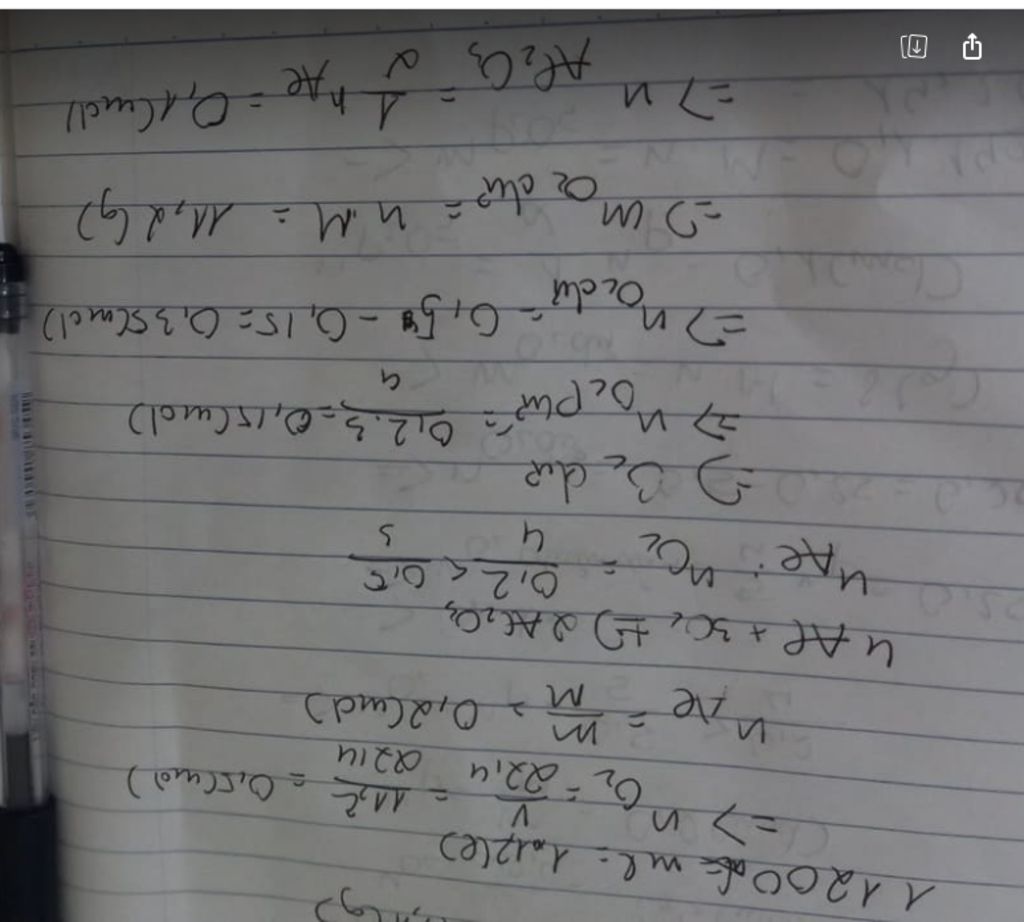 1 1200 ml = 11,2(l)
=> n O2 = V/22,4 = 11,2/22,4 = 0,5(mol)
n Al = m/M = 0,2(mol)
4Al + 3O2 => 2Al2O3
nAl : nO2 = 0,2/4 < 0,5/3
=> O2 dư
=> n O2 pư = 0,2.3/4 = 0,15(mol)
=> n O2 dư = 0,5 - 0,15 = 0,35(mol)
=> m O2 dư = n.M = 11,2(g)
=> n Al2O3 = 1/2 n Al = 0,1(mol)